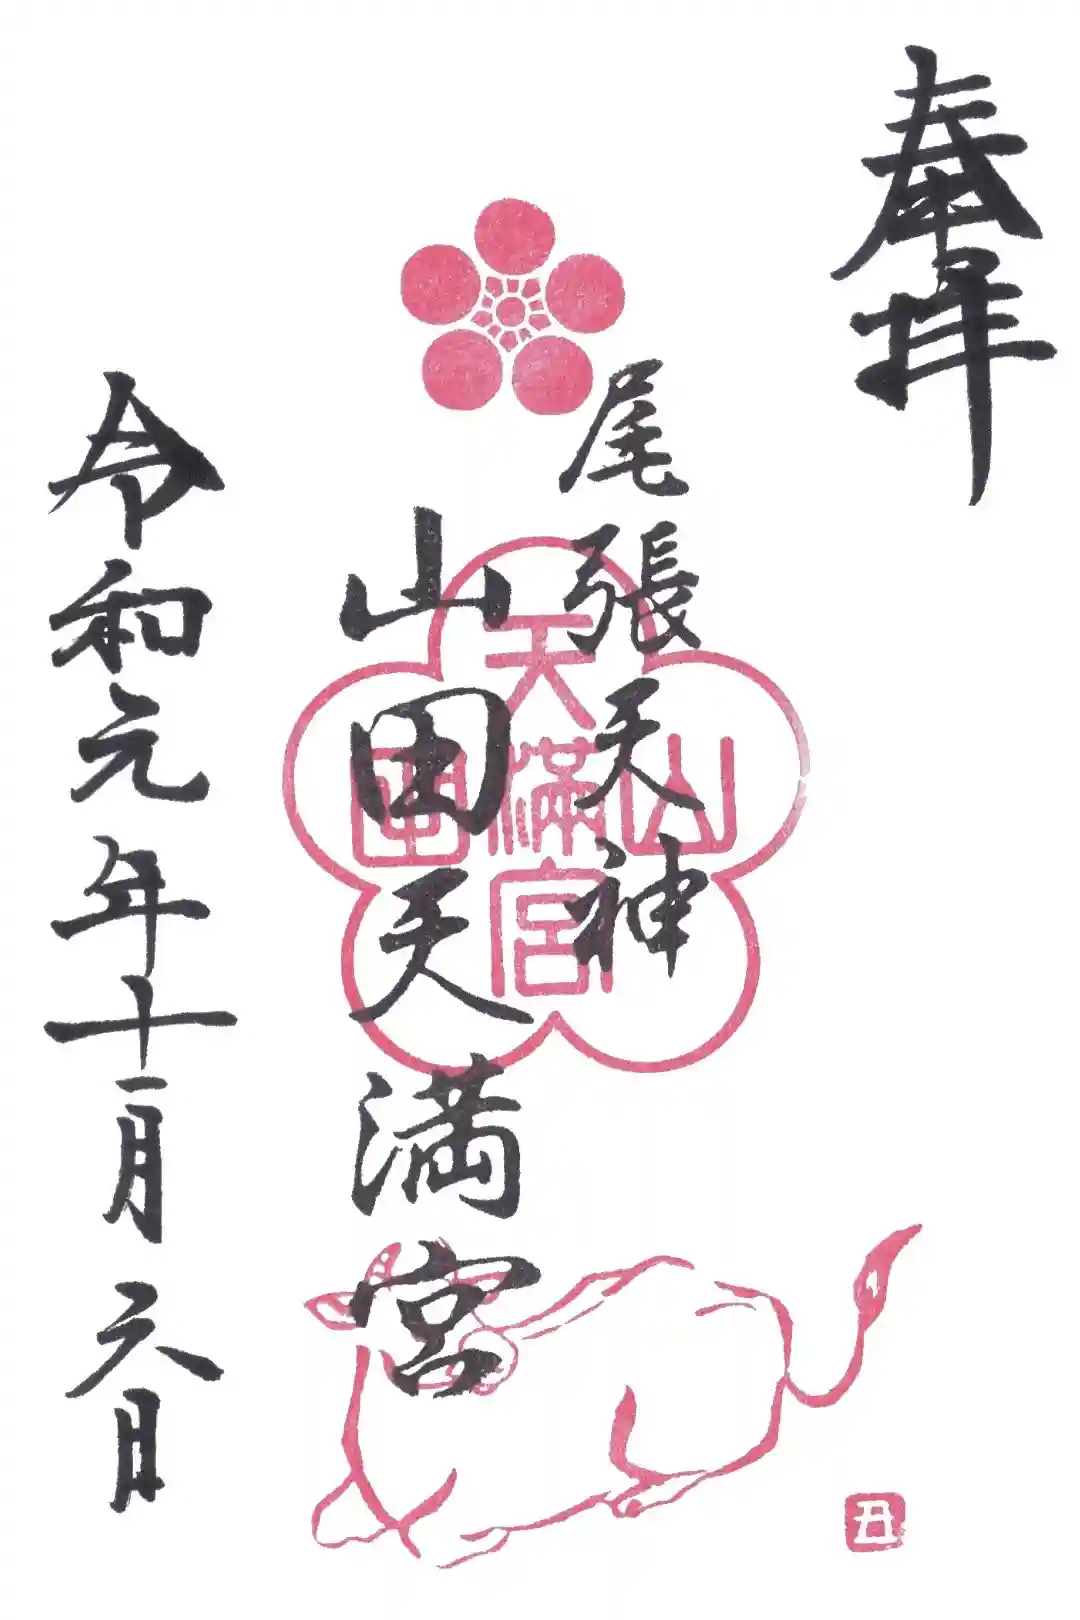 奉拝
尾張天神
山田天満宮
山田天満宮
令和元年十一月六日
丑